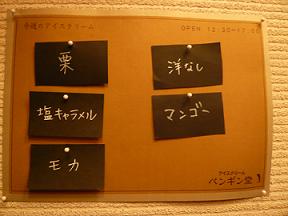 今週のアイスクリーム
OPEN 12:30-17:00
栗
洋なし
塩キャラメル
マンゴー
モカ
アイスクリーム
ペンギン堂